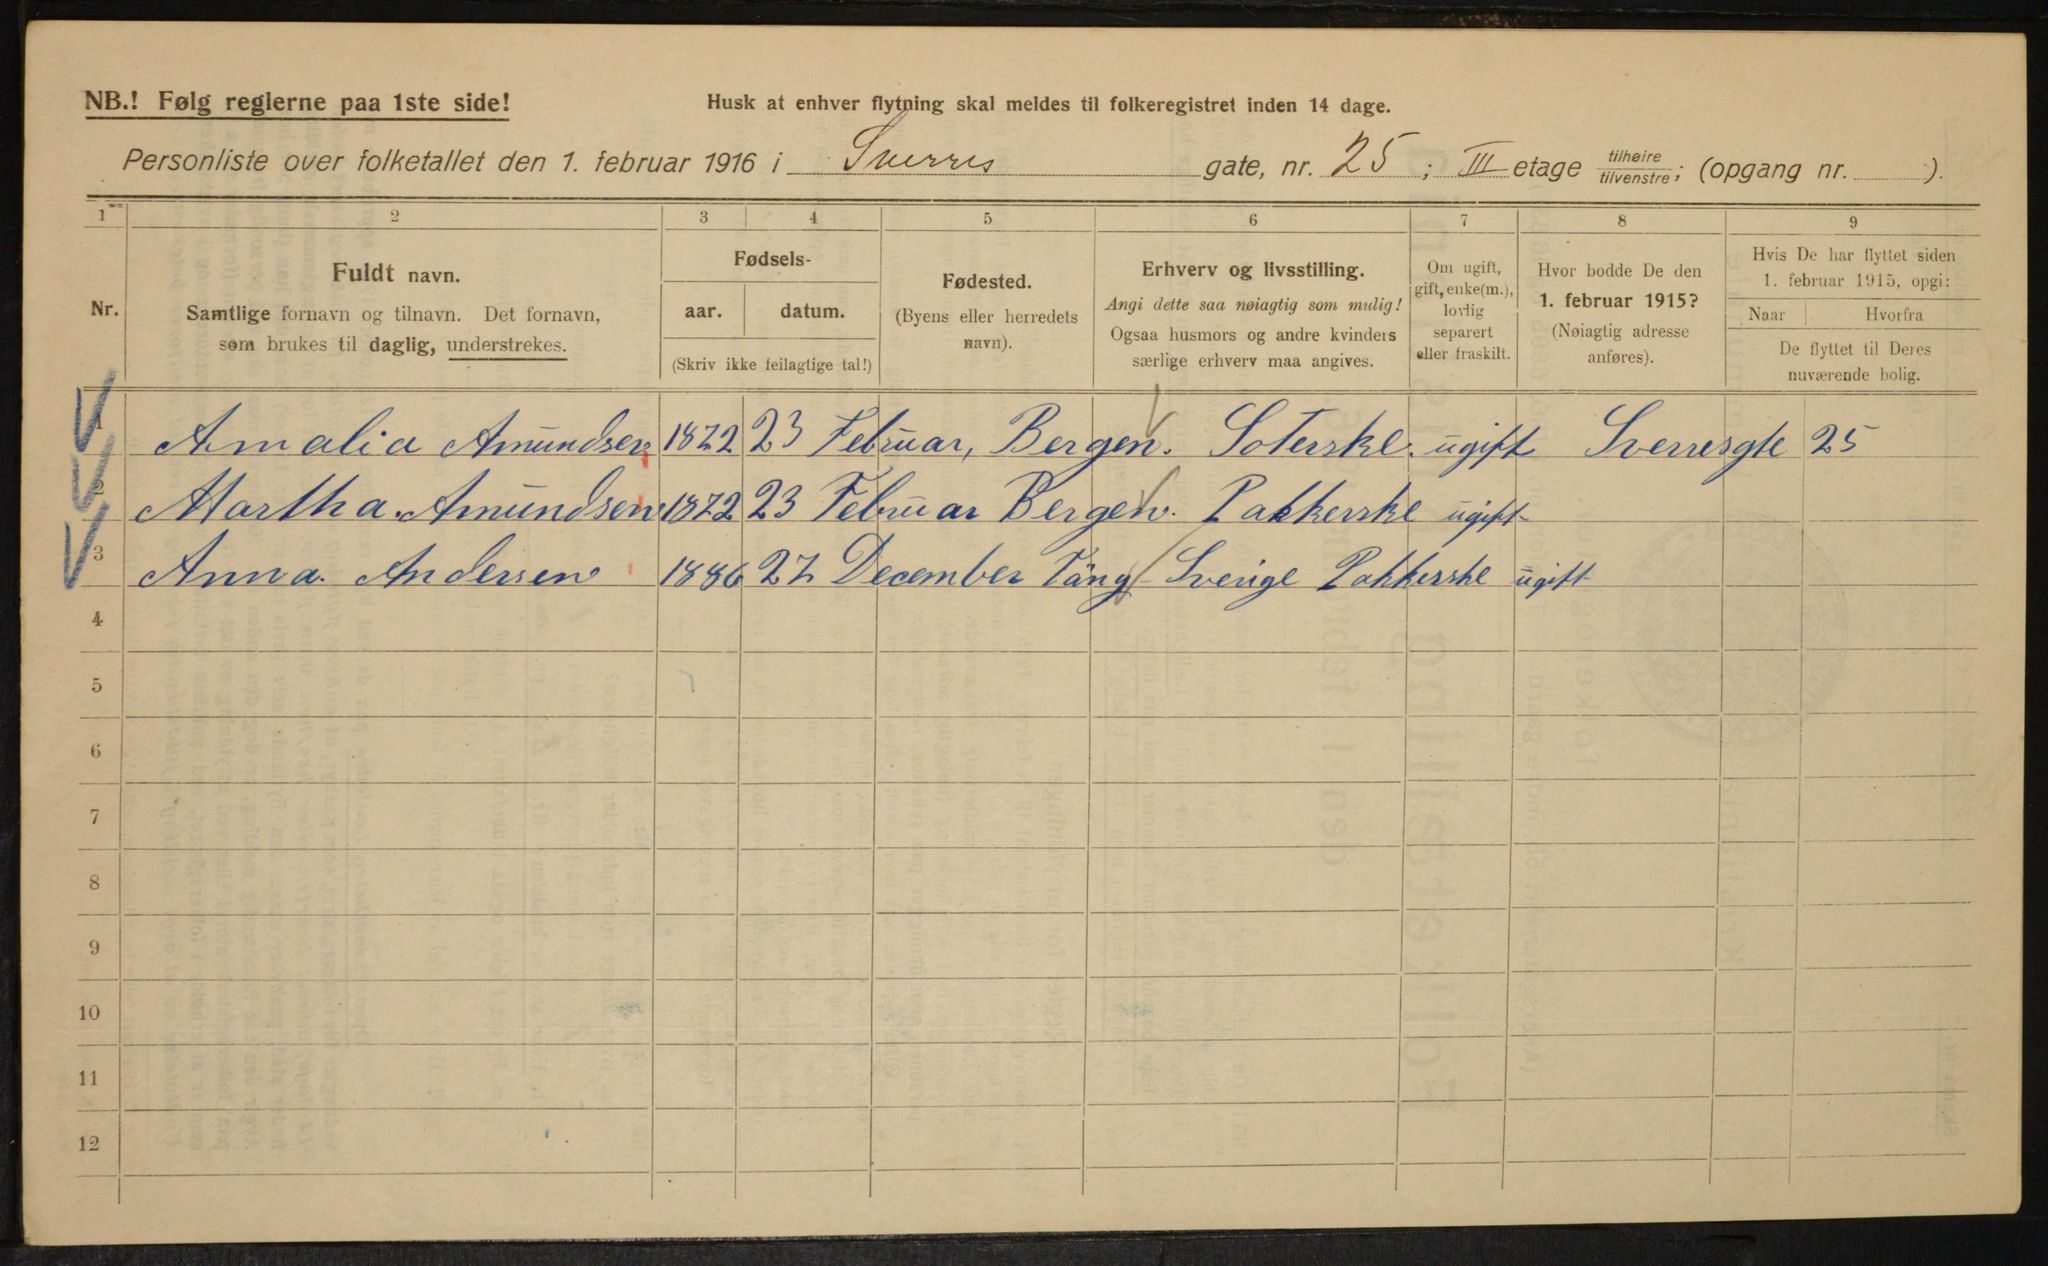 NB.! Følg reglerne paa 1ste side!
Husk at enhver flytning skal meldes til folkeregistret inden 14 dage.
Personliste over folketallet den 1. februar 1916 i Sverres gate, nr. 25; III etage tilhøire tilvenstre; (opgang nr. ).
1 2 3 4 5 6 7 8 9
Nr.
Fuldt navn.
Samtlige fornavn og tilnavn. Det fornavn,
som brukes til daglig, understrekes.
Fødsels-
aar. datum.
(Skriv ikke feilagtige tal!)
Fødested.
(Byens eller herredets
navn).
Erhverv og livsstilling.
Angi dette saa nøiagtig som mulig!
Ogsaa husmors og andre kvinders
særlige erhverv maa angives.
Om ugift,
gift, enke(m.),
lovlig
separert
eller fraskilt.
Hvor bodde De den
1. februar 1915?
(Nøiagtig adresse
anføres).
Hvis De har flyttet siden
1. februar 1915, opgi:
Naar Hvorfra
De flyttet til Deres
nuværende bolig.
1 Amalia Amundsen 1872 23 Februar, Bergen. Soterske. ugift Sverresgte 25
2 Martha. Amundsen 1872 23 Februar Bergen. Pakkerske ugift
3 Anna. Andersen 1886 27 December Täng Sverige Pakkerske ugift
4
5
6
7
8
9
10
11
12